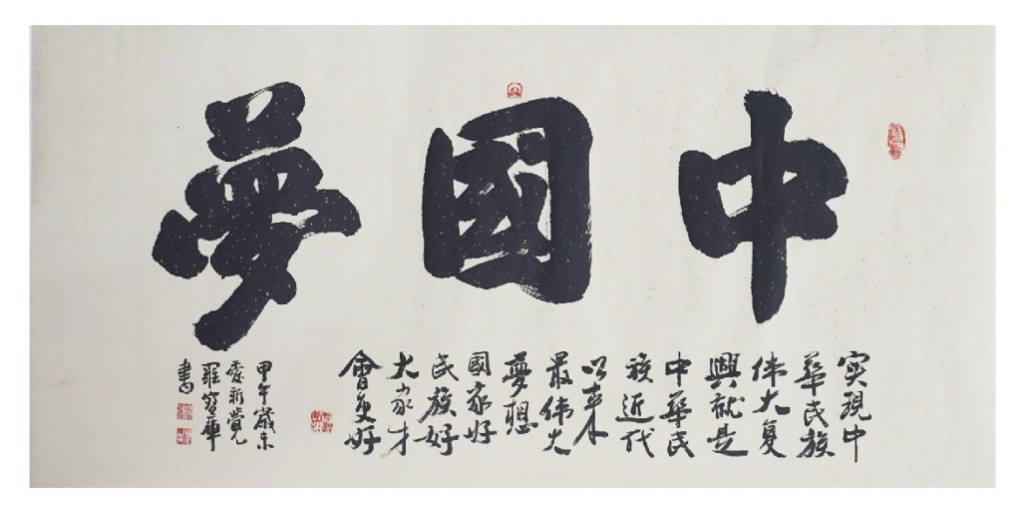 中國夢
实現中
華民族
伟大复
興就是
中華民
族近代
以来
最伟大
夢想
國家好
民族好
大家才
會更好
甲午歲末
愛新覺
羅寶華
書